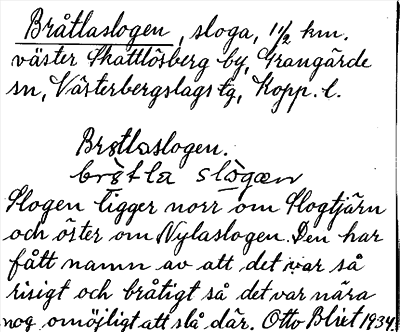 Bråtlaslogen, sloga, 1½ km.
väster Skattlösberg by, Grangärde
sn, Västerbergslags tg, Kopp. l.
Brɵtlaslogen.
brɵ̀tla slògæn
Slogen ligger norr om Slogtjärn
och öster om Nylaslogen. Den har
fått namn av att det var så
risigt och bråtigt så det var nära
nog omöjligt att slå där. Otto Blixt 1934.